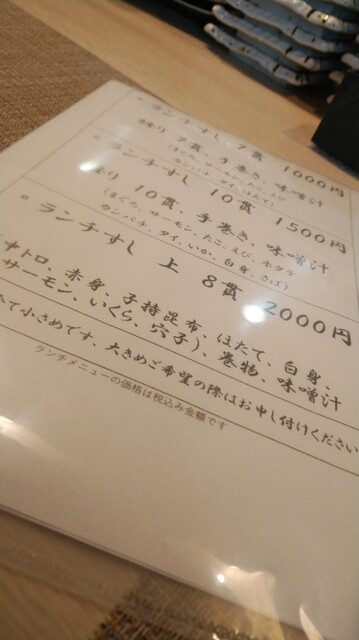 ランチすし 7貫 1000円
握り 7貫、手巻き、味噌汁
ランチすし 10貫 1500円
握り 10貫、手巻き、味噌汁
(まぐろ、サーモン、たこ、えび、ホタテ
カンパチ、タイ、いか、白身、さば)
ランチすし 上 8貫 2000円
中トロ、赤身、子持昆布、ほたて、白身、
サーモン、いくら、穴子)、巻物、味噌汁
て小さめです、大きめご希望の際はお申し付けください
ランチメニューの価格は税込み金額です